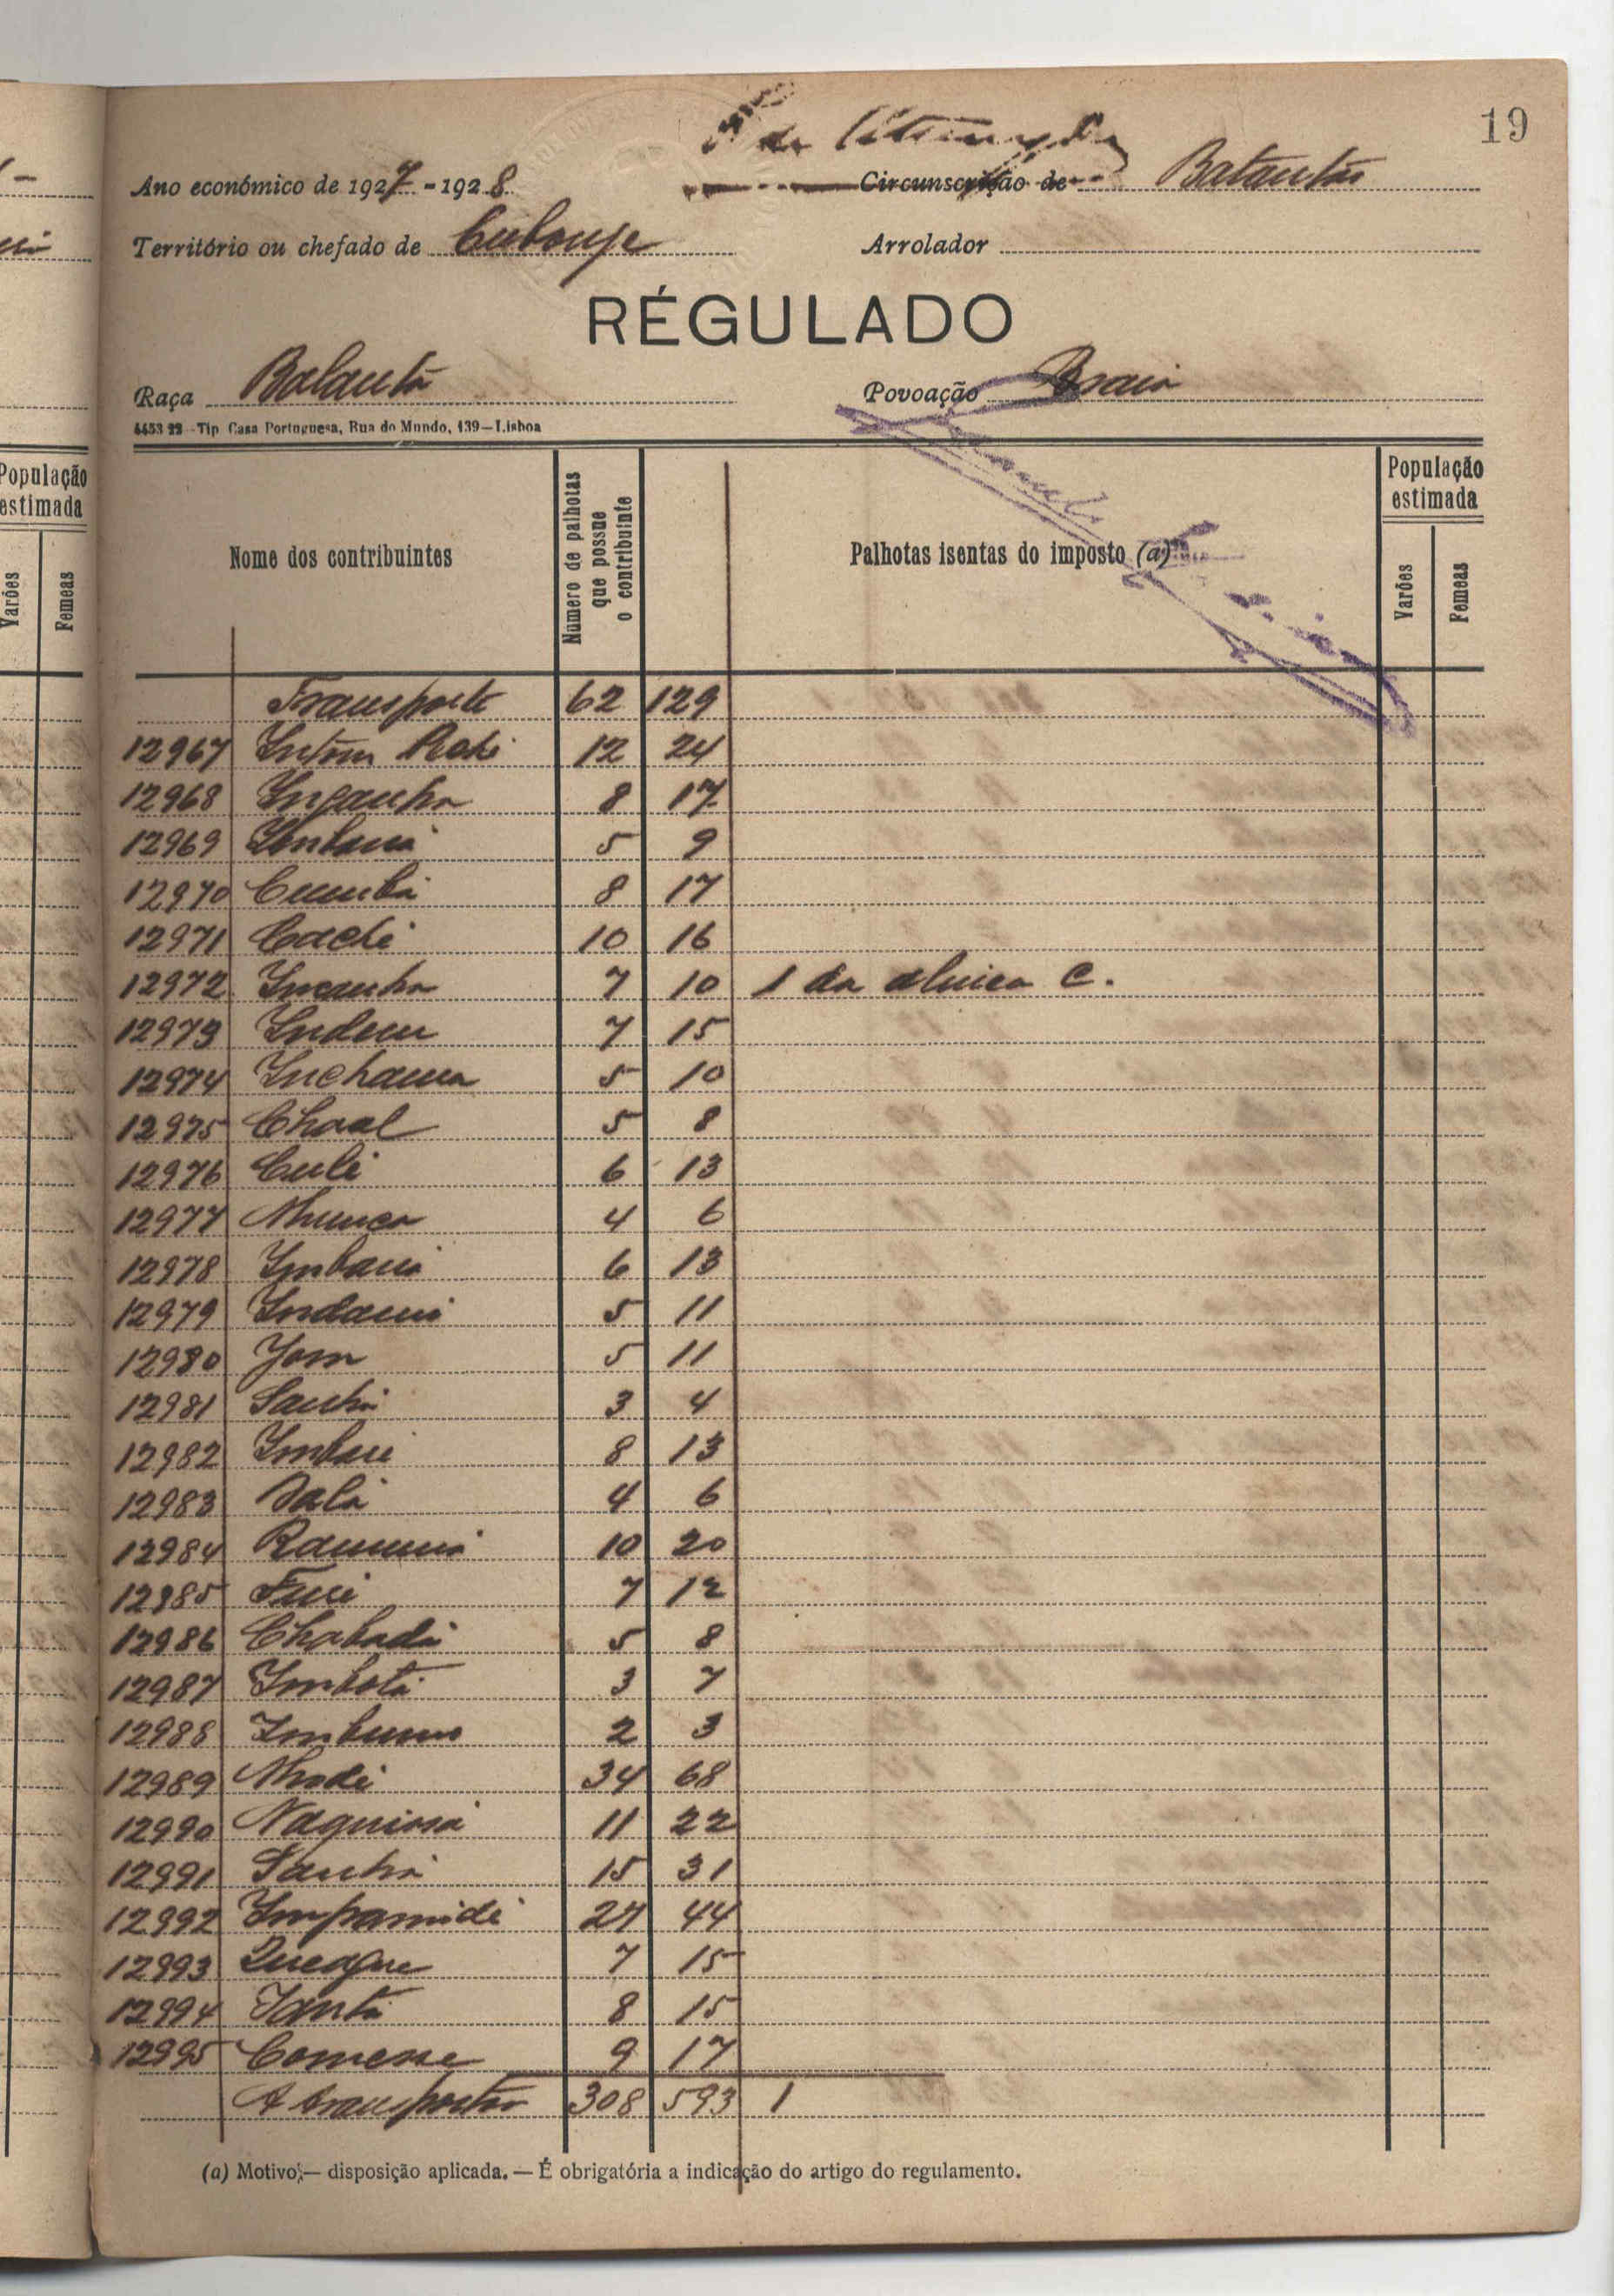 19
Ano económico de 1927-1928 Circunscrição de Balantas
Território ou chefado de Cubonje Arrolador
RÉGULADO
Raça Balanta Povoação Braia
Tip Casa Portuguesa, Rua do Mundo, 139—Lisboa
População estimada
Varões Femeas
Nome dos contribuintes
Número de palhotas que possue o contribuinte
Palhotas isentas do imposto (a)
População estimada
Varões Femeas
Transporte 62 129
12967 Intom 12 24
12968 Incanha 8 17
12969 Imbana 5 9
12970 Cumbá 8 17
12971 Cachi 10 16
12972 Incanha 7 10 1 da alinea C.
12973 Indem 7 15
12974 Inchama 5 10
12975 Chaal 5 8
12976 Culi 6 13
12977 Nhunca 4 6
12978 Imbana 6 13
12979 Indami 5 11
12980 Yom 5 11
12981 Sanhá 3 4
12982 Imbari 8 13
12983 Dalá 4 6
12984 10 20
12985 Furi 7 12
12986 Chabadá 5 8
12987 Imbotá 3 7
12988 Imbuno 2 3
12989 Nhodi 34 68
12990 Naquiosá 11 22
12991 Sanhá 15 31
12992 27 44
12993 7 15
12994 Iantá 8 15
12995 9 17
A transportar 308 593 1
(a) Motivo;— disposição aplicada. — É obrigatória a indicação do artigo do regulamento.